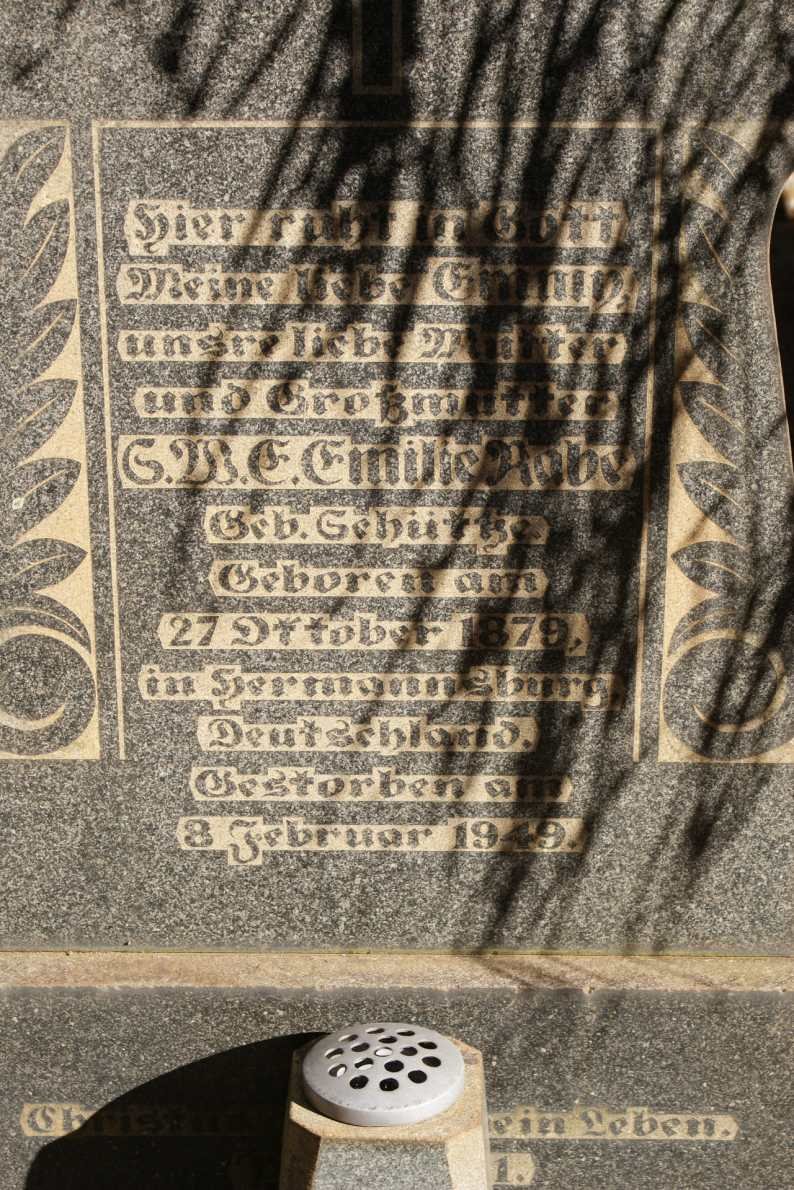 Hier ruht in Gott
Meine liebe Emmy,
unsre liebe Mutter
und Großmutter
S.W.E. Emilie Rabe
Geb. Schütze.
Geboren am
27 Oktober 1879,
in Hermannsburg,
Deutschland.
Gestorben am
8 Februar 1949.
Christus ein Leben.
1.